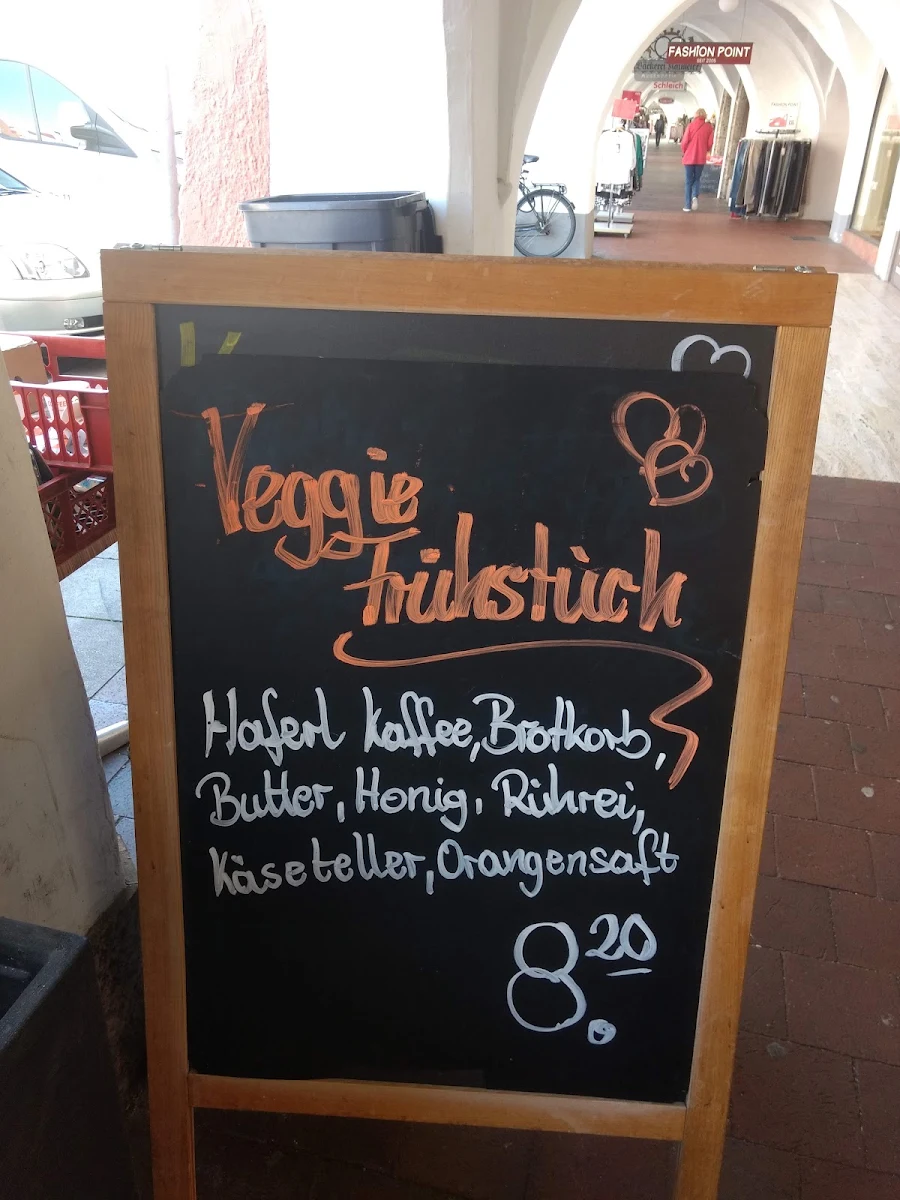 FASHION POINT
SEIT 2005
Schleich
FASHION POINT
Veggie
Frühstück
Haferl Kaffee, Brotkorb,
Butter, Honig, Rührei,
Käseteller, Orangensaft
8.20